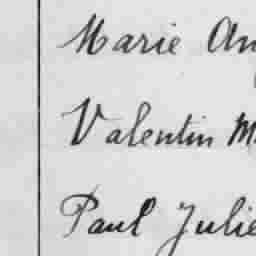 Marie An
Valentin M
Paul Julie